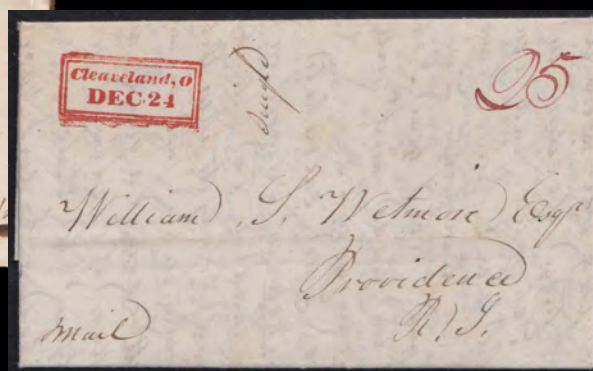 Cleaveland, O
DEC 24
Single
25
William S. Wetmore Esqr
Providence
R. I.
Mail